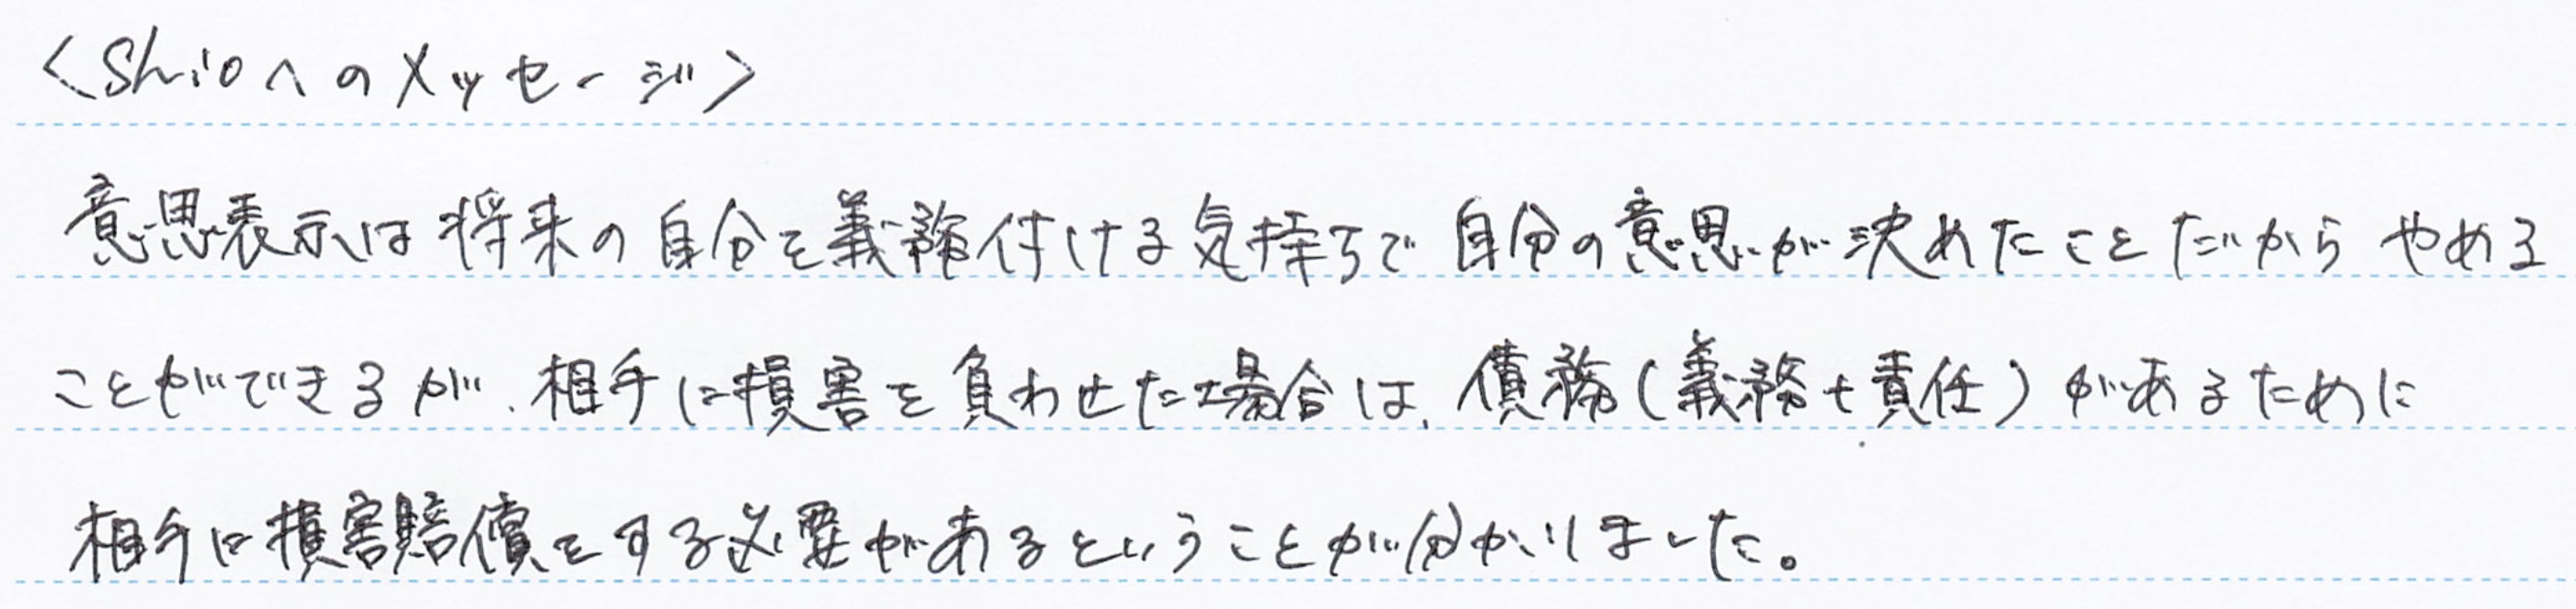 <Shioへのメッセージ>
意思表示は将来の自分を義務付ける気持ちで自分の意思が決めたことだからやめる
ことができるが、相手に損害を負わせた場合は、債務(義務+責任)があるために
相手に損害賠償をする必要があるということが分かりました。